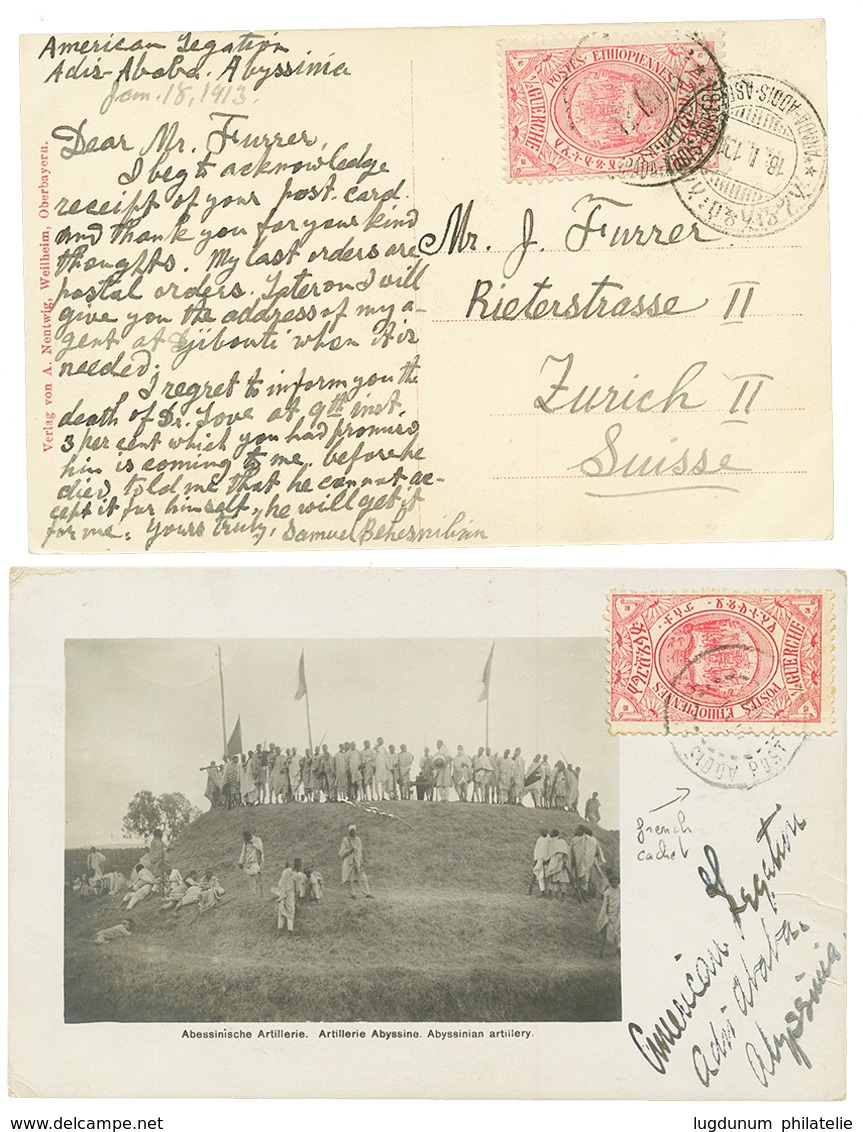 American Legation
Adis-Ababa. Abyssinia
Jan. 18, 1913.
Dear Mr. Furrer,
I beg to acknowledge
receipt of your post-card
and thank you for your kind
thoughts. My last orders are
postal orders. Later on I will
give you the address of my a-
gent at Djibouti when it is
needed.
I regret to inform you the
death of Dr. Love at 9th inst.
3 per cent which you had promised
him is coming to me. before he
died, told me that he cannot ac-
cept it for himself, he will get it
for me. Yours truly, Samuel Behesnilian
Verlag von A. Nentwig, Weilheim, Oberbayern.
POSTES ETHIOPIENNES
¼ GUERCHE
Mr. J. Furrer
Rieterstrasse II
Zurich II
Suisse
POSTES ETHIOPIENNES
¼ GUERCHE
ADDIS
french
cachet
American Legation
Adis Ababa.
Abyssinia.
Abessinische Artillerie. Artillerie Abyssine. Abyssinian artillery.
lugdunum philatelie